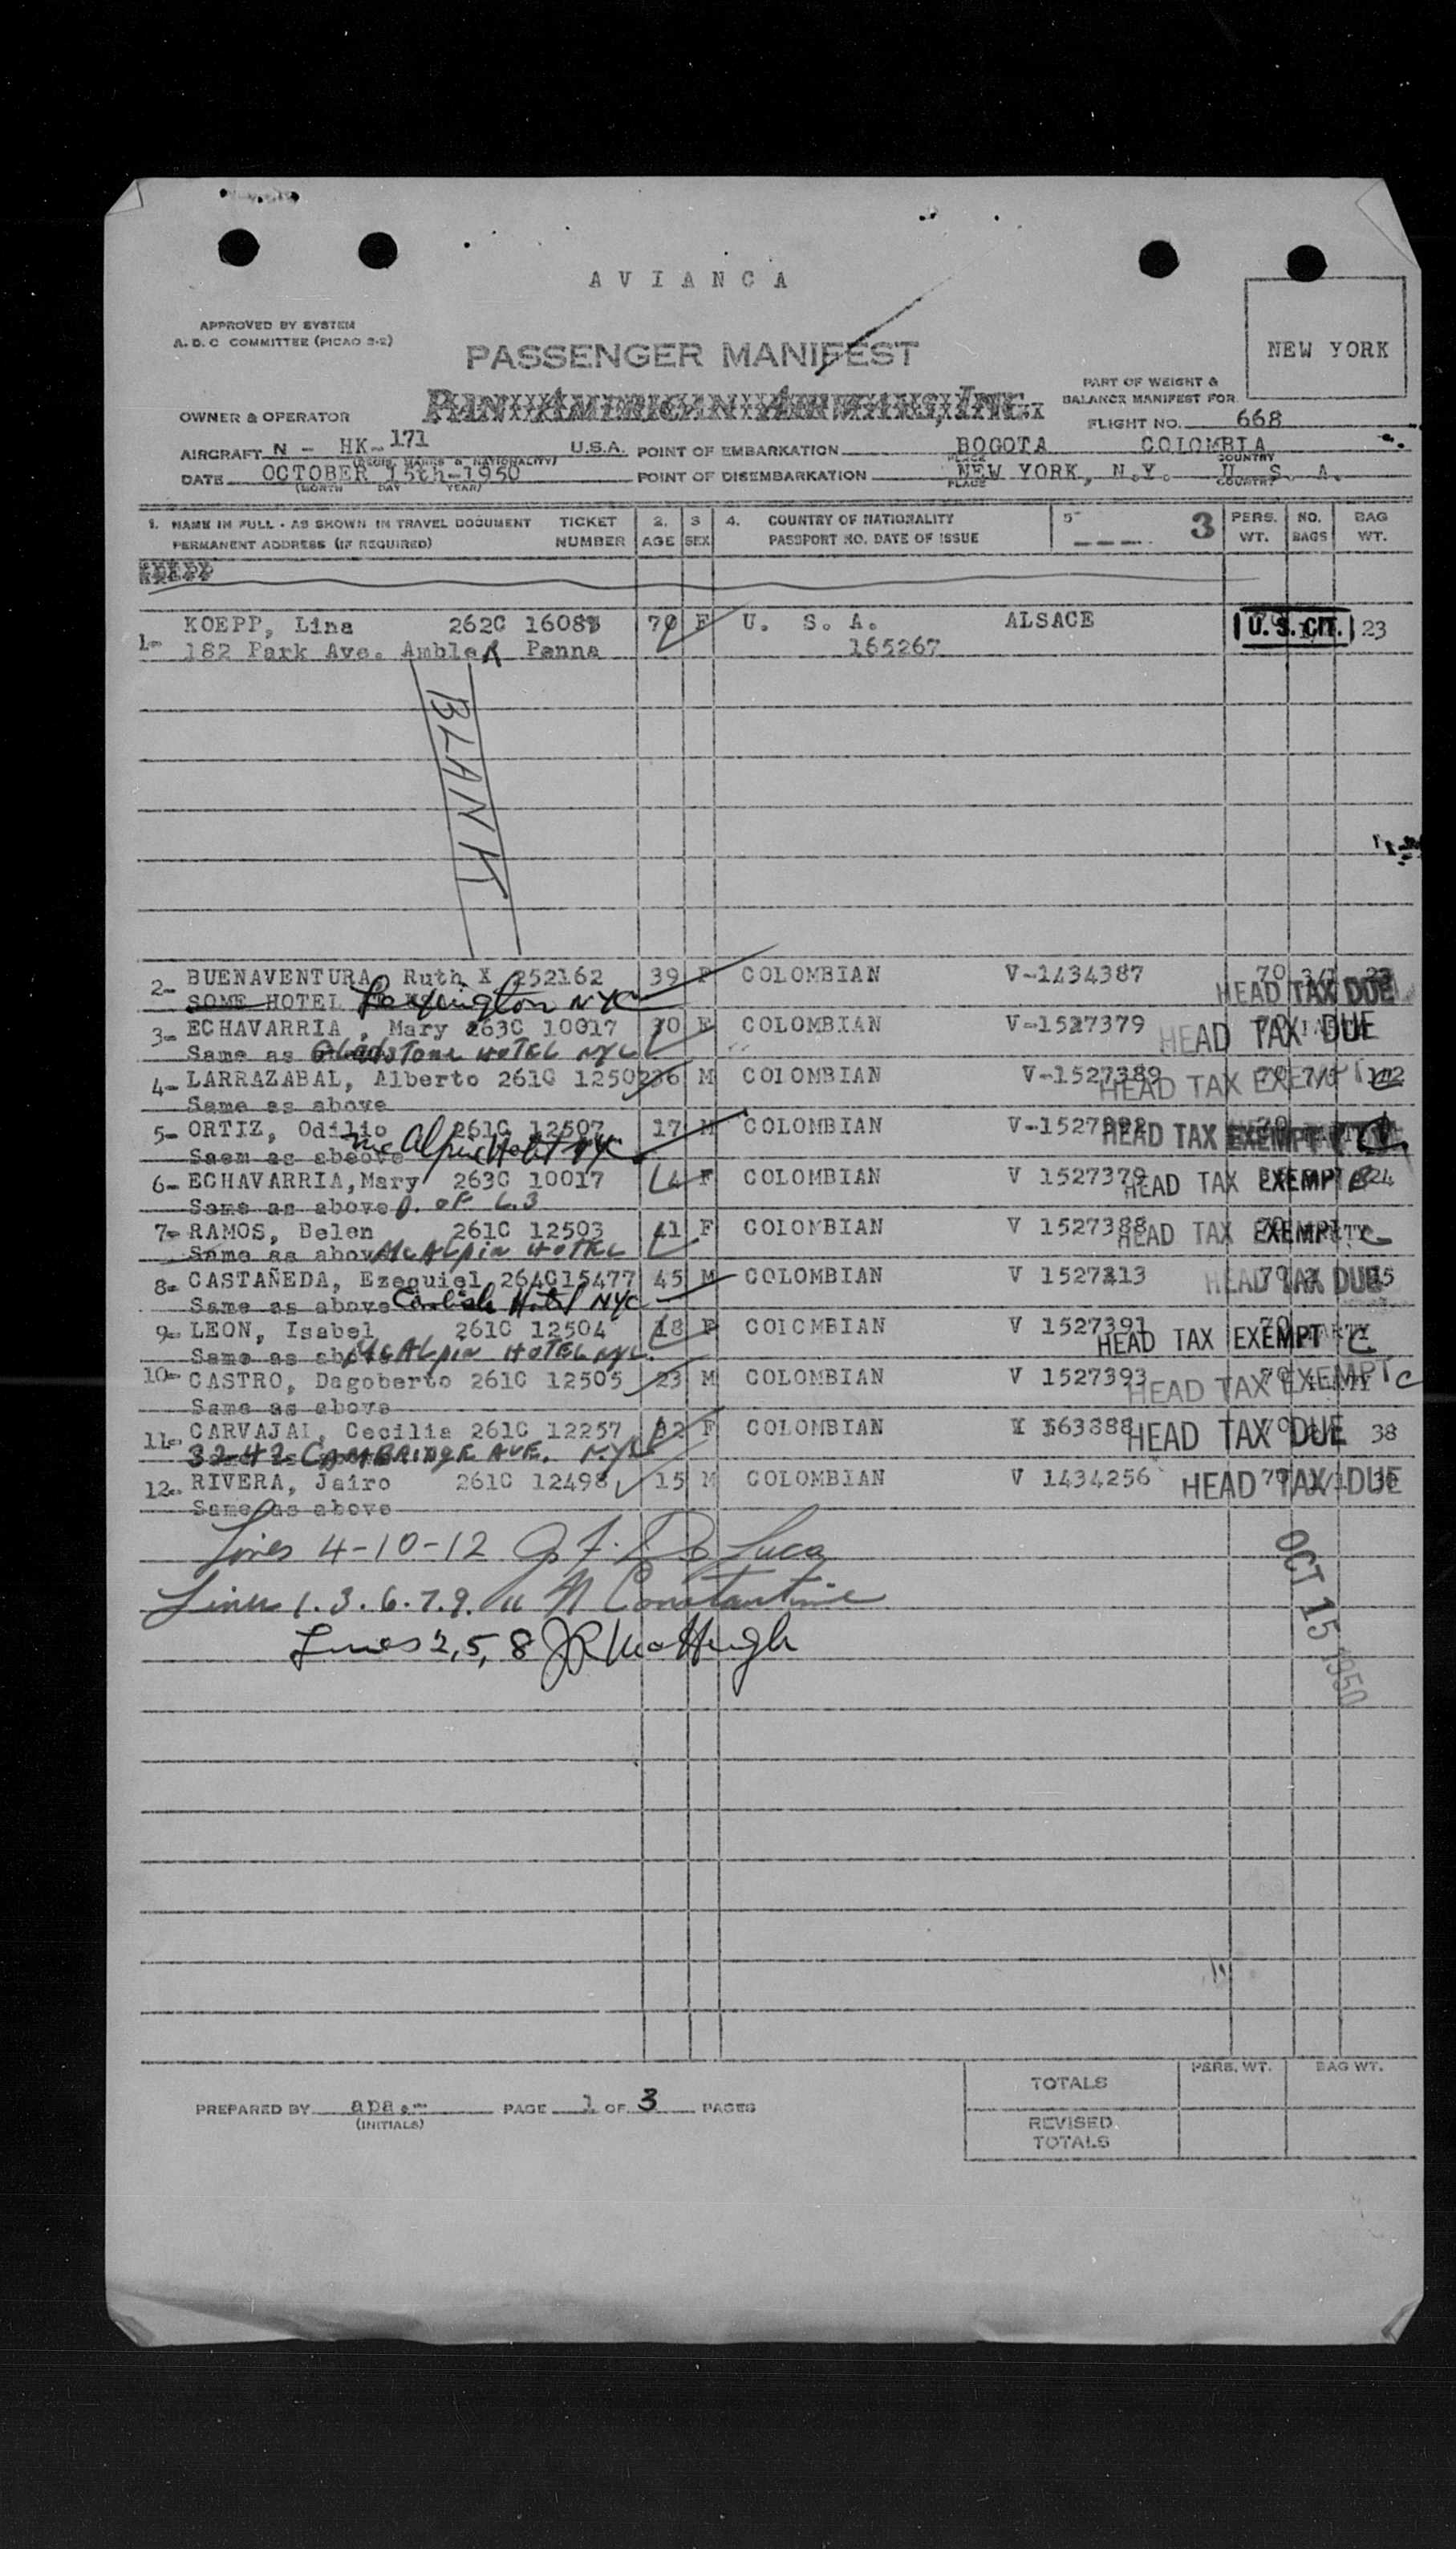 AVIANCA
APPROVED BY SYSTEM
A. D. C COMMITTEE (PICAO 2-2)
PASSENGER MANIFEST
NEW YORK
PART OF WEIGHT &
BALANCE MANIFEST FOR
OWNER & OPERATOR
PAN AMERICAN AIRWAYS, INC.
FLIGHT NO. 668
AIRCRAFT N - HK-171 U.S.A. POINT OF EMBARKATION BOGOTA COLOMBIA
(REGIS. MARKS & NATIONALITY) PLACE COUNTRY
DATE OCTOBER 15th-1950 POINT OF DISEMBARKATION NEW YORK, N.Y. U. S. A.
(MONTH DAY YEAR) PLACE COUNTRY
1. NAME IN FULL - AS SHOWN IN TRAVEL DOCUMENT TICKET 2. 3 4. COUNTRY OF NATIONALITY 5 3 PERS. NO. BAG
PERMANENT ADDRESS (IF REQUIRED) NUMBER AGE SEX PASSPORT NO. DATE OF ISSUE WT. BAGS WT.
1- KOEPP, Lina 262C 1608 70 F U. S. A. ALSACE U. S. CIT. 23
182 Park Ave. Ambler Penna 165267
BLANK
2- BUENAVENTURA, Ruth X 252162 39 F COLOMBIAN V-1434387 70 HEAD TAX DUE
SOME HOTEL Lexington NYC
3- ECHAVARRIA, Mary 263C 10017 F COLOMBIAN V-1527379 HEAD TAX DUE
Same as Gladstone HOTEL NYC
4- LARRAZABAL, Alberto 261C 1250 36 M COLOMBIAN V-1527389 HEAD TAX EXEMPT
Same as above
5- ORTIZ, Odilio 261C 12507 17 M COLOMBIAN HEAD TAX EXEMPT
Saem as abeove McAlpin Hotel NYC
6- ECHAVARRIA, Mary 263C 10017 4 F COLOMBIAN V 1527379 HEAD TAX EXEMPT 24
Same as above D. OF L.3
7- RAMOS, Belen 261C 12503 F COLOMBIAN V 1527388 HEAD TAX EXEMPT C
Same as above McAlpin HOTEL
8- CASTAÑEDA, Ezequiel 264C15477 45 M COLOMBIAN V 1527213 HEAD TAX DUE
Same as above Hotel NYC
9- LEON, Isabel 261C 12504 18 F COLOMBIAN V 1527391 HEAD TAX EXEMPT C
Same as above McAlpin HOTEL NYC
10- CASTRO, Dagoberto 261C 12505 23 M COLOMBIAN V 1527393 HEAD TAX EXEMPT C
Same as above
11- CARVAJAL, Cecilia 261C 12257 F COLOMBIAN 163888 HEAD TAX DUE 38
3242 CAMBRIDGE AVE. NYC
12- RIVERA, Jairo 261C 12498 15 M COLOMBIAN V 1434256 HEAD TAX DUE
Same as above
Lines 4-10-12 J. F. De Luca
Lines 1. 3. 6. 7. 9. 11 N Constantine
Lines 2, 5, 8
OCT 15 1950
PERS. WT. BAG WT.
TOTALS
PREPARED BY apa.- PAGE 1 OF 3 PAGES
(INITIALS)
REVISED
TOTALS